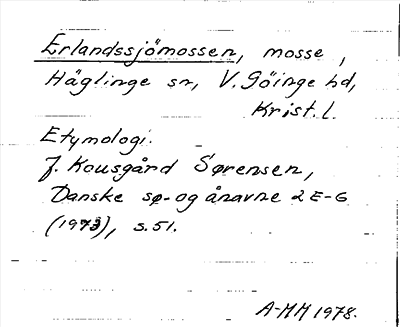 Erlandssjömossen, mosse,
Häglinge sn, V. Göinge hd,
Krist. l.
Etymologi:
J. Kousgård Sørensen,
Danske sø- og ånavne 2 E-G
(1973), s. 51.
A-MM 1978.